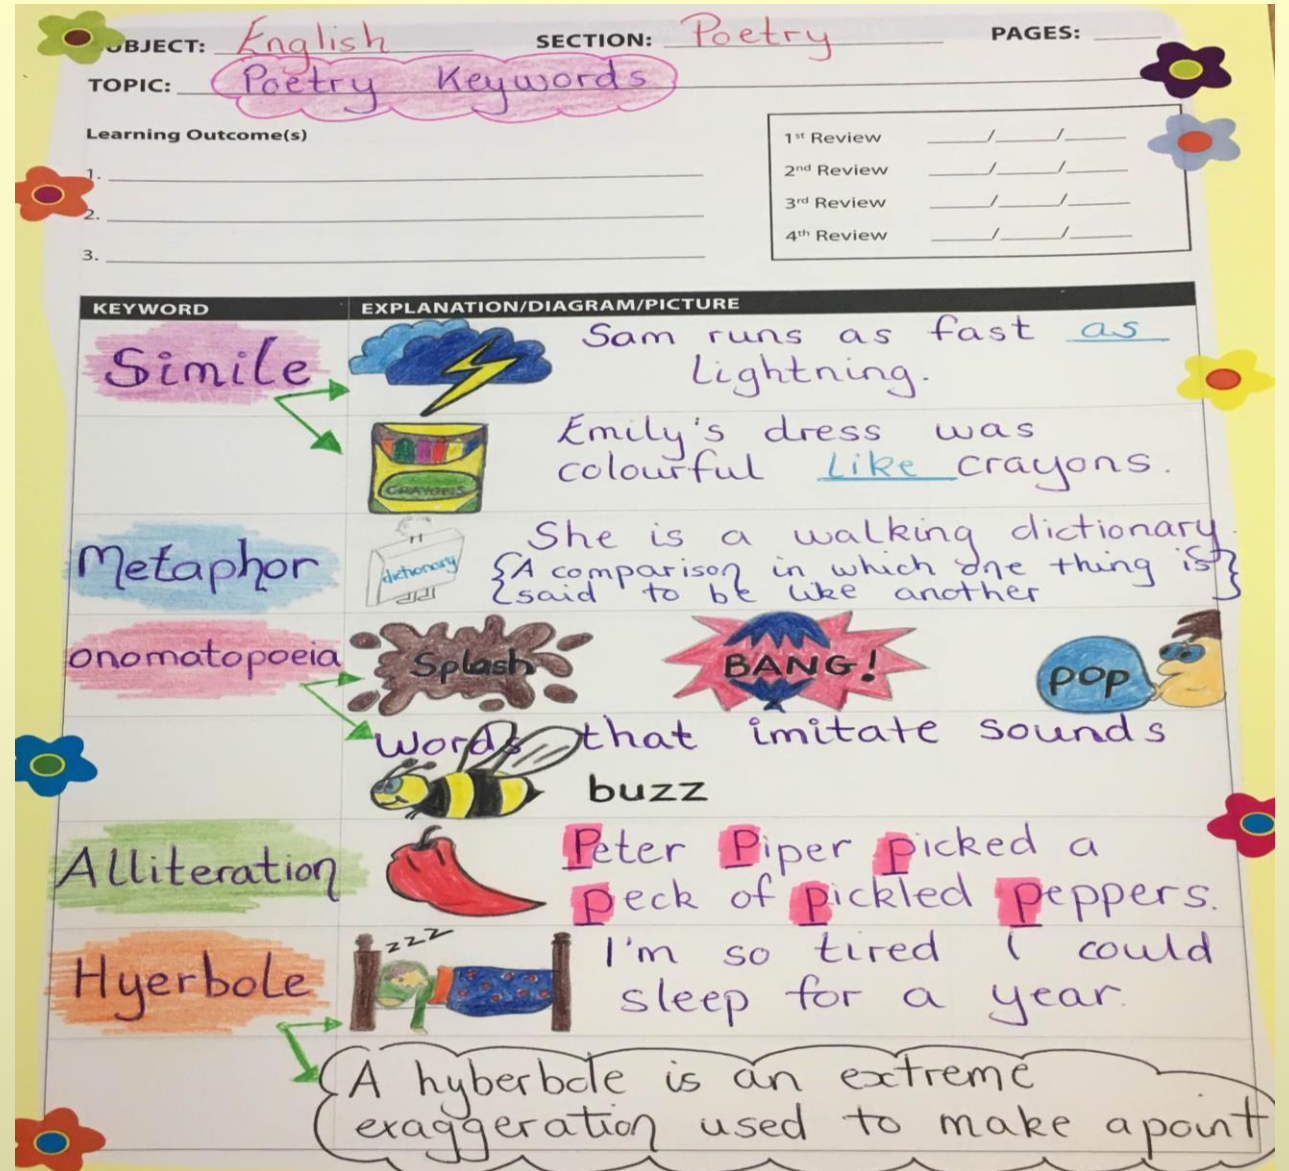 SUBJECT: English SECTION: Poetry PAGES:
TOPIC: Poetry Keywords
Learning Outcome(s)
1.
2.
3.
1st Review / /
2nd Review / /
3rd Review / /
4th Review / /
KEYWORD EXPLANATION/DIAGRAM/PICTURE
Simile
Sam runs as fast as
Lightning.
Emily's dress was
colourful like crayons.
CRAYONS
Metaphor
dictionary
She is a walking dictionary.
{A comparison in which one thing is}
{said to be like another}
onomatopoeia
Splash BANG! pop
Words that imitate sounds
buzz
Alliteration
Peter Piper picked a
peck of pickled peppers.
Hyerbole
zzz
I'm so tired I could
sleep for a year.
A hyberbole is an extreme
exaggeration used to make a point